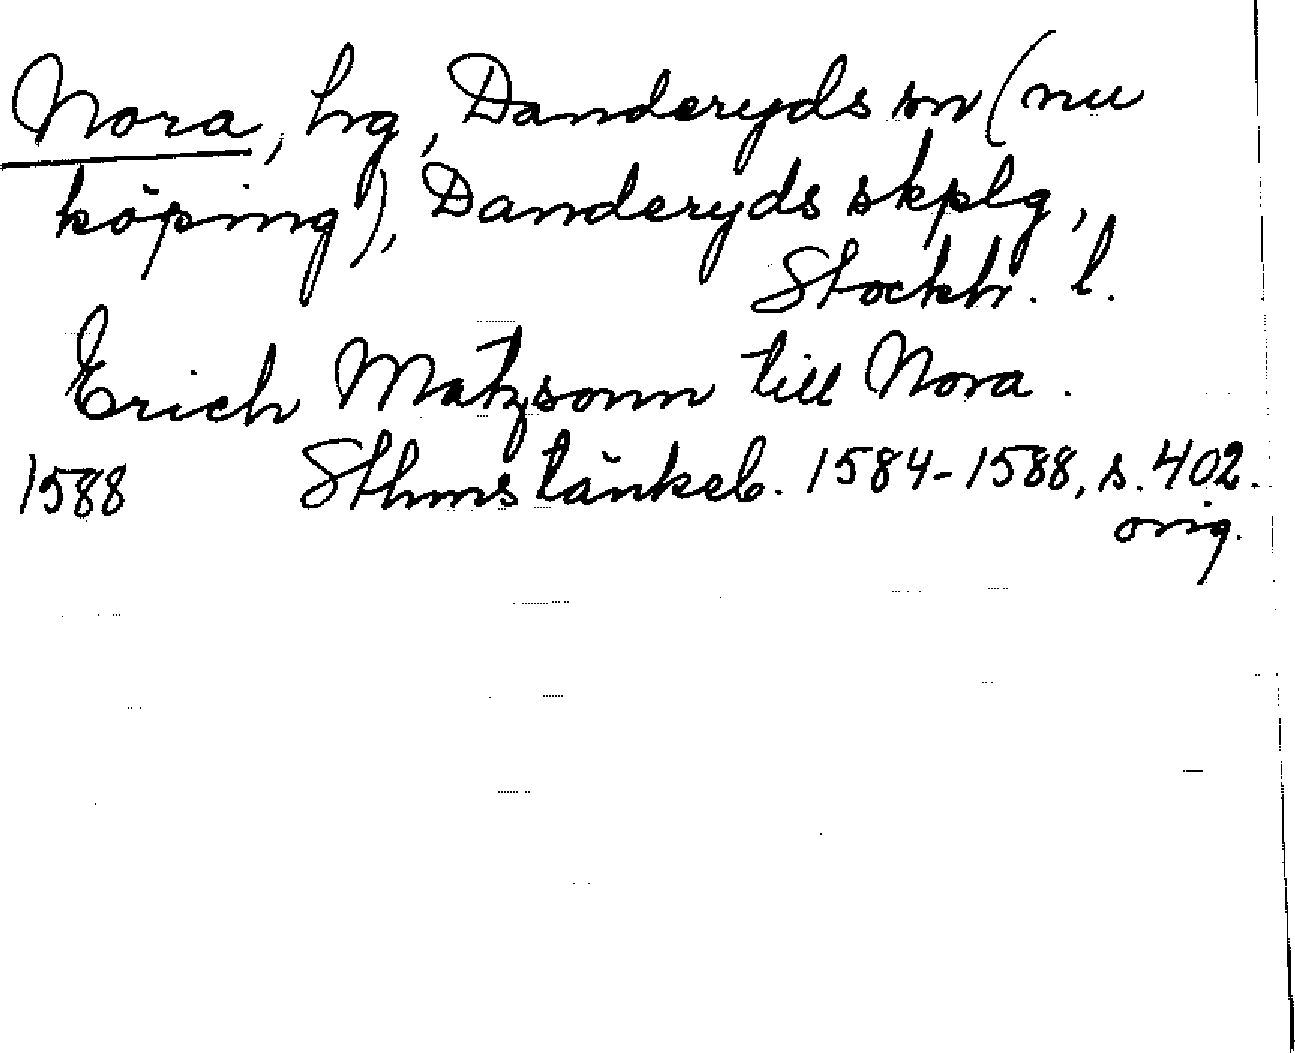 Nora, hg, Danderyds sn (nu
köping), Danderyds skplg,
Stockh. l.
Erich Matzsonn till Nora.
1588 Sthms tänkeb. 1584-1588, s. 402.
orig.